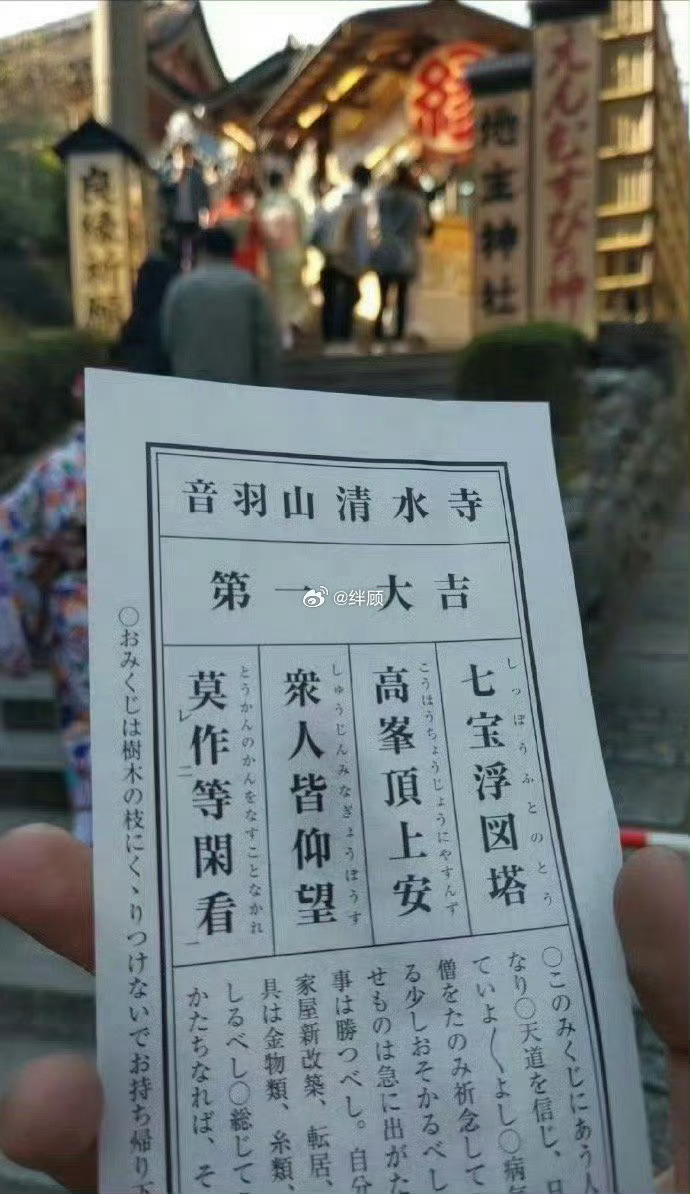 良縁祈願
縁
地主神社
えんむすびの神
音羽山清水寺
第一大吉
@绊顾
七宝浮図塔
しっぽうふとのとう
高峯頂上安
こうほうちょうじょうにやすんず
衆人皆仰望
しゅうじんみなぎょうぼうす
莫作等閑看
レ二一
とうかんのかんをなすことなかれ
○このみくじにあう人
なり○天道を信じ、日
ていよ〱よし○病気
僧をたのみ祈念して
る少しおそかるべし
せものは急に出がた
事は勝つべし。自分
家屋新改築、転居、
具は金物類、糸類、
しるべし○総じて
かたちなれば、そ
○おみくじは樹木の枝にくゝりつけないでお持ち帰り下